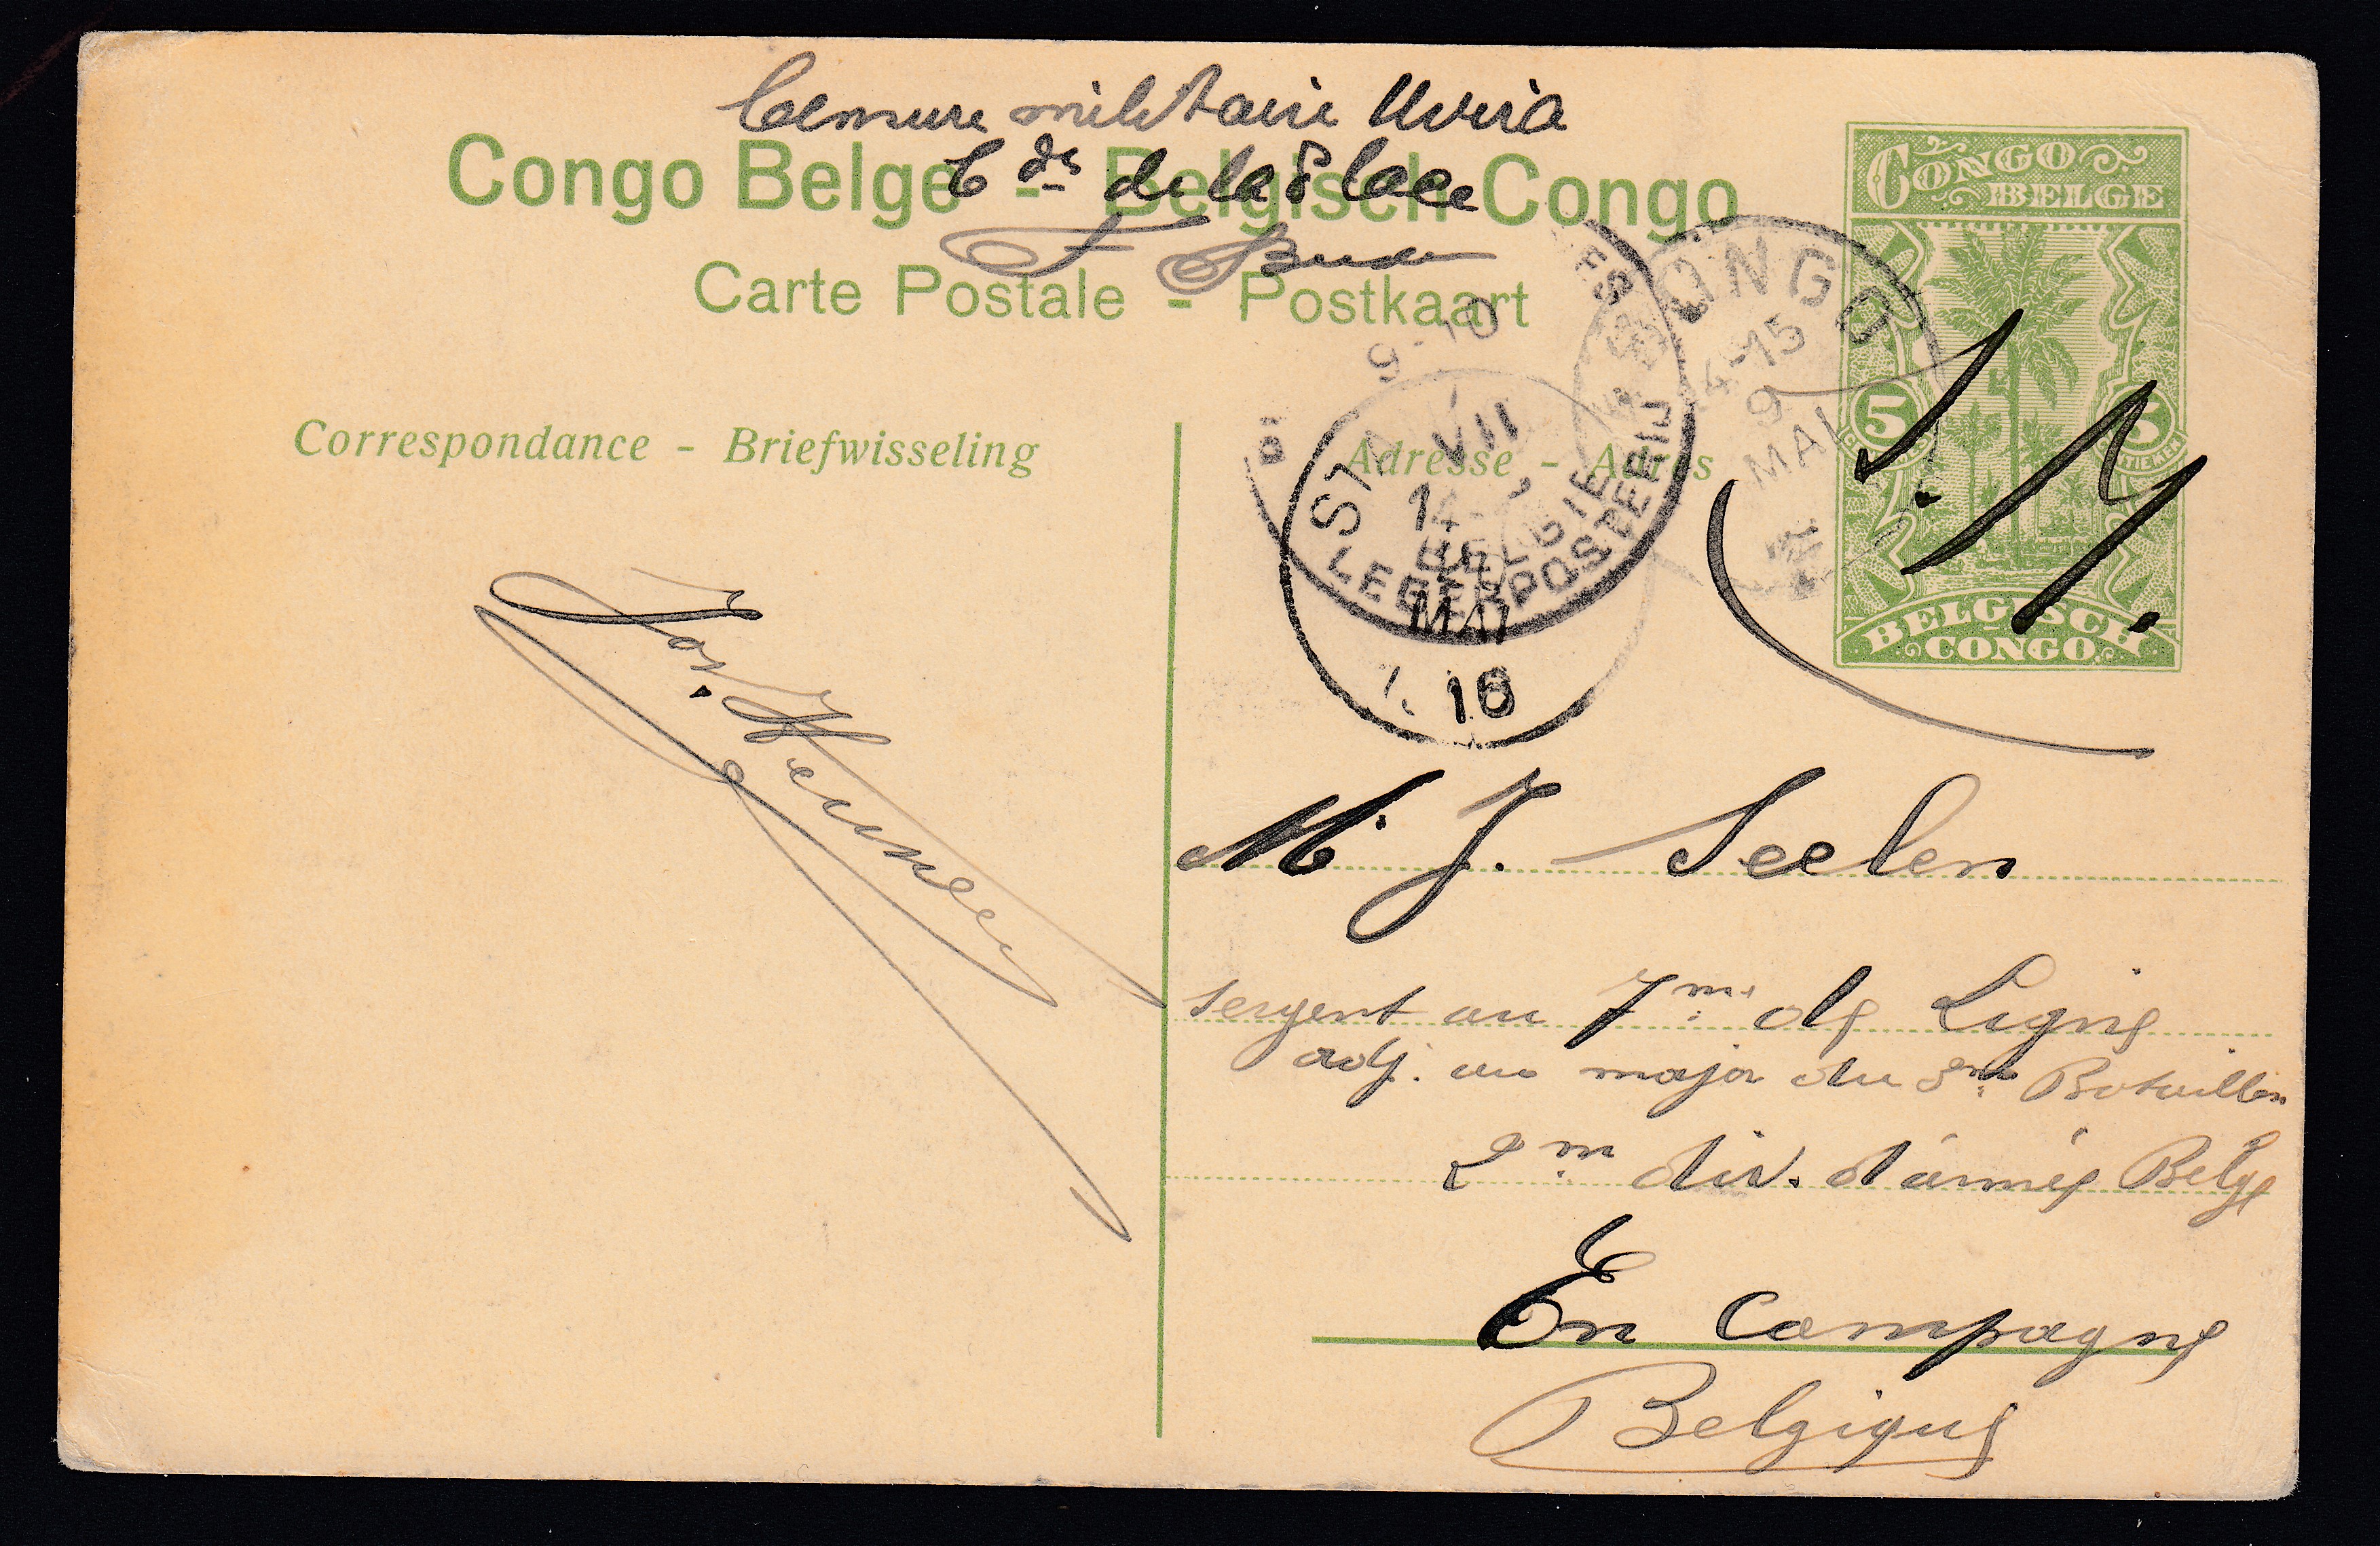 Censure militaire Uvira
Congo Belge - Belgisch Congo
C dt de la Place
Carte Postale - Postkaart
CONGO BELGE
5 5
BELGISCH CONGO
S. M.
ONGO
14-15
9
MAI
9-10
VII
14-
BELGIE
LEGERPOSTERIJ
MAI
16
Correspondance - Briefwisseling
Adresse - Adres
Jos.
Mr J. Seelen
sergent au 7me de Ligne
adj. au major du 3me Bataillon
2me div. d'armée Belge
En Campagne
Belgique